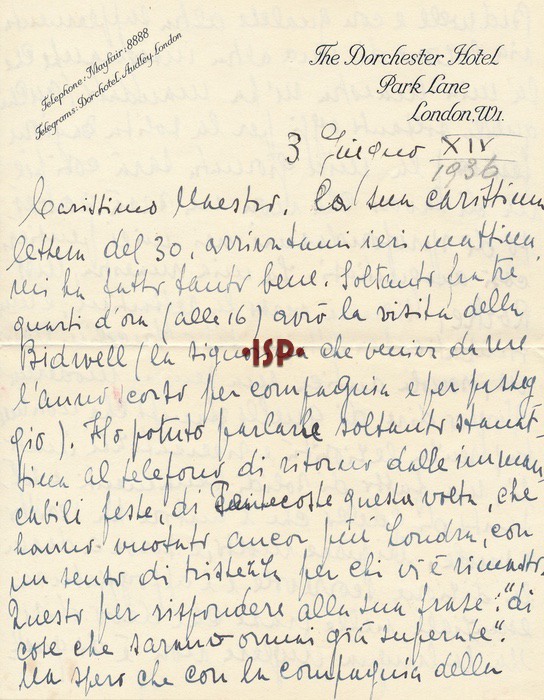 Telephone: Mayfair: 8888
Telegrams: Dorchotel. Audley. London
The Dorchester Hotel
Park Lane
London, W1.
3 Giugno XIV
1936
Carissimo Maestro. La sua carissima
lettera del 30, arrivatami ieri mattina
mi ha fatto tanto bene. Soltanto fra tre
quarti d'ora (alle 16) avrò la visita della
Bidwell (la signora che veniva da me
·ISP·
l'anno scorso per compagnia e per passeg
gio). Ho potuto parlarle soltanto stamat-
tina al telefono di ritorno dalle imman-
cabili feste, di Pentecoste questa volta, che
hanno vuotato ancor più Londra, con
un senso di tristezza per chi vi è rimasto.
Questo per rispondere alla sua frase: "di
cose che saranno ormai già superate".
Ma spero che con la compagnia della